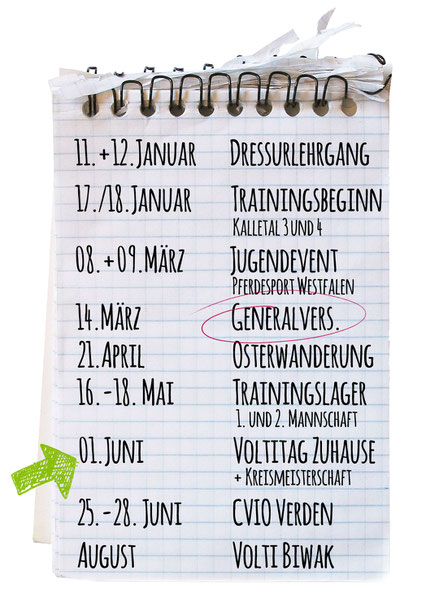 11.+12.Januar Dressurlehrgang
17./18.Januar Trainingsbeginn
Kalletal 3 und 4
08.+09.März Jugendevent
Pferdesport Westfalen
14.März Generalvers.
21.April Osterwanderung
16.-18. Mai Trainingslager
1. und 2. Mannschaft
01.Juni Voltitag Zuhause
+ Kreismeisterschaft
25.-28. Juni CVIO Verden
August Volti Biwak